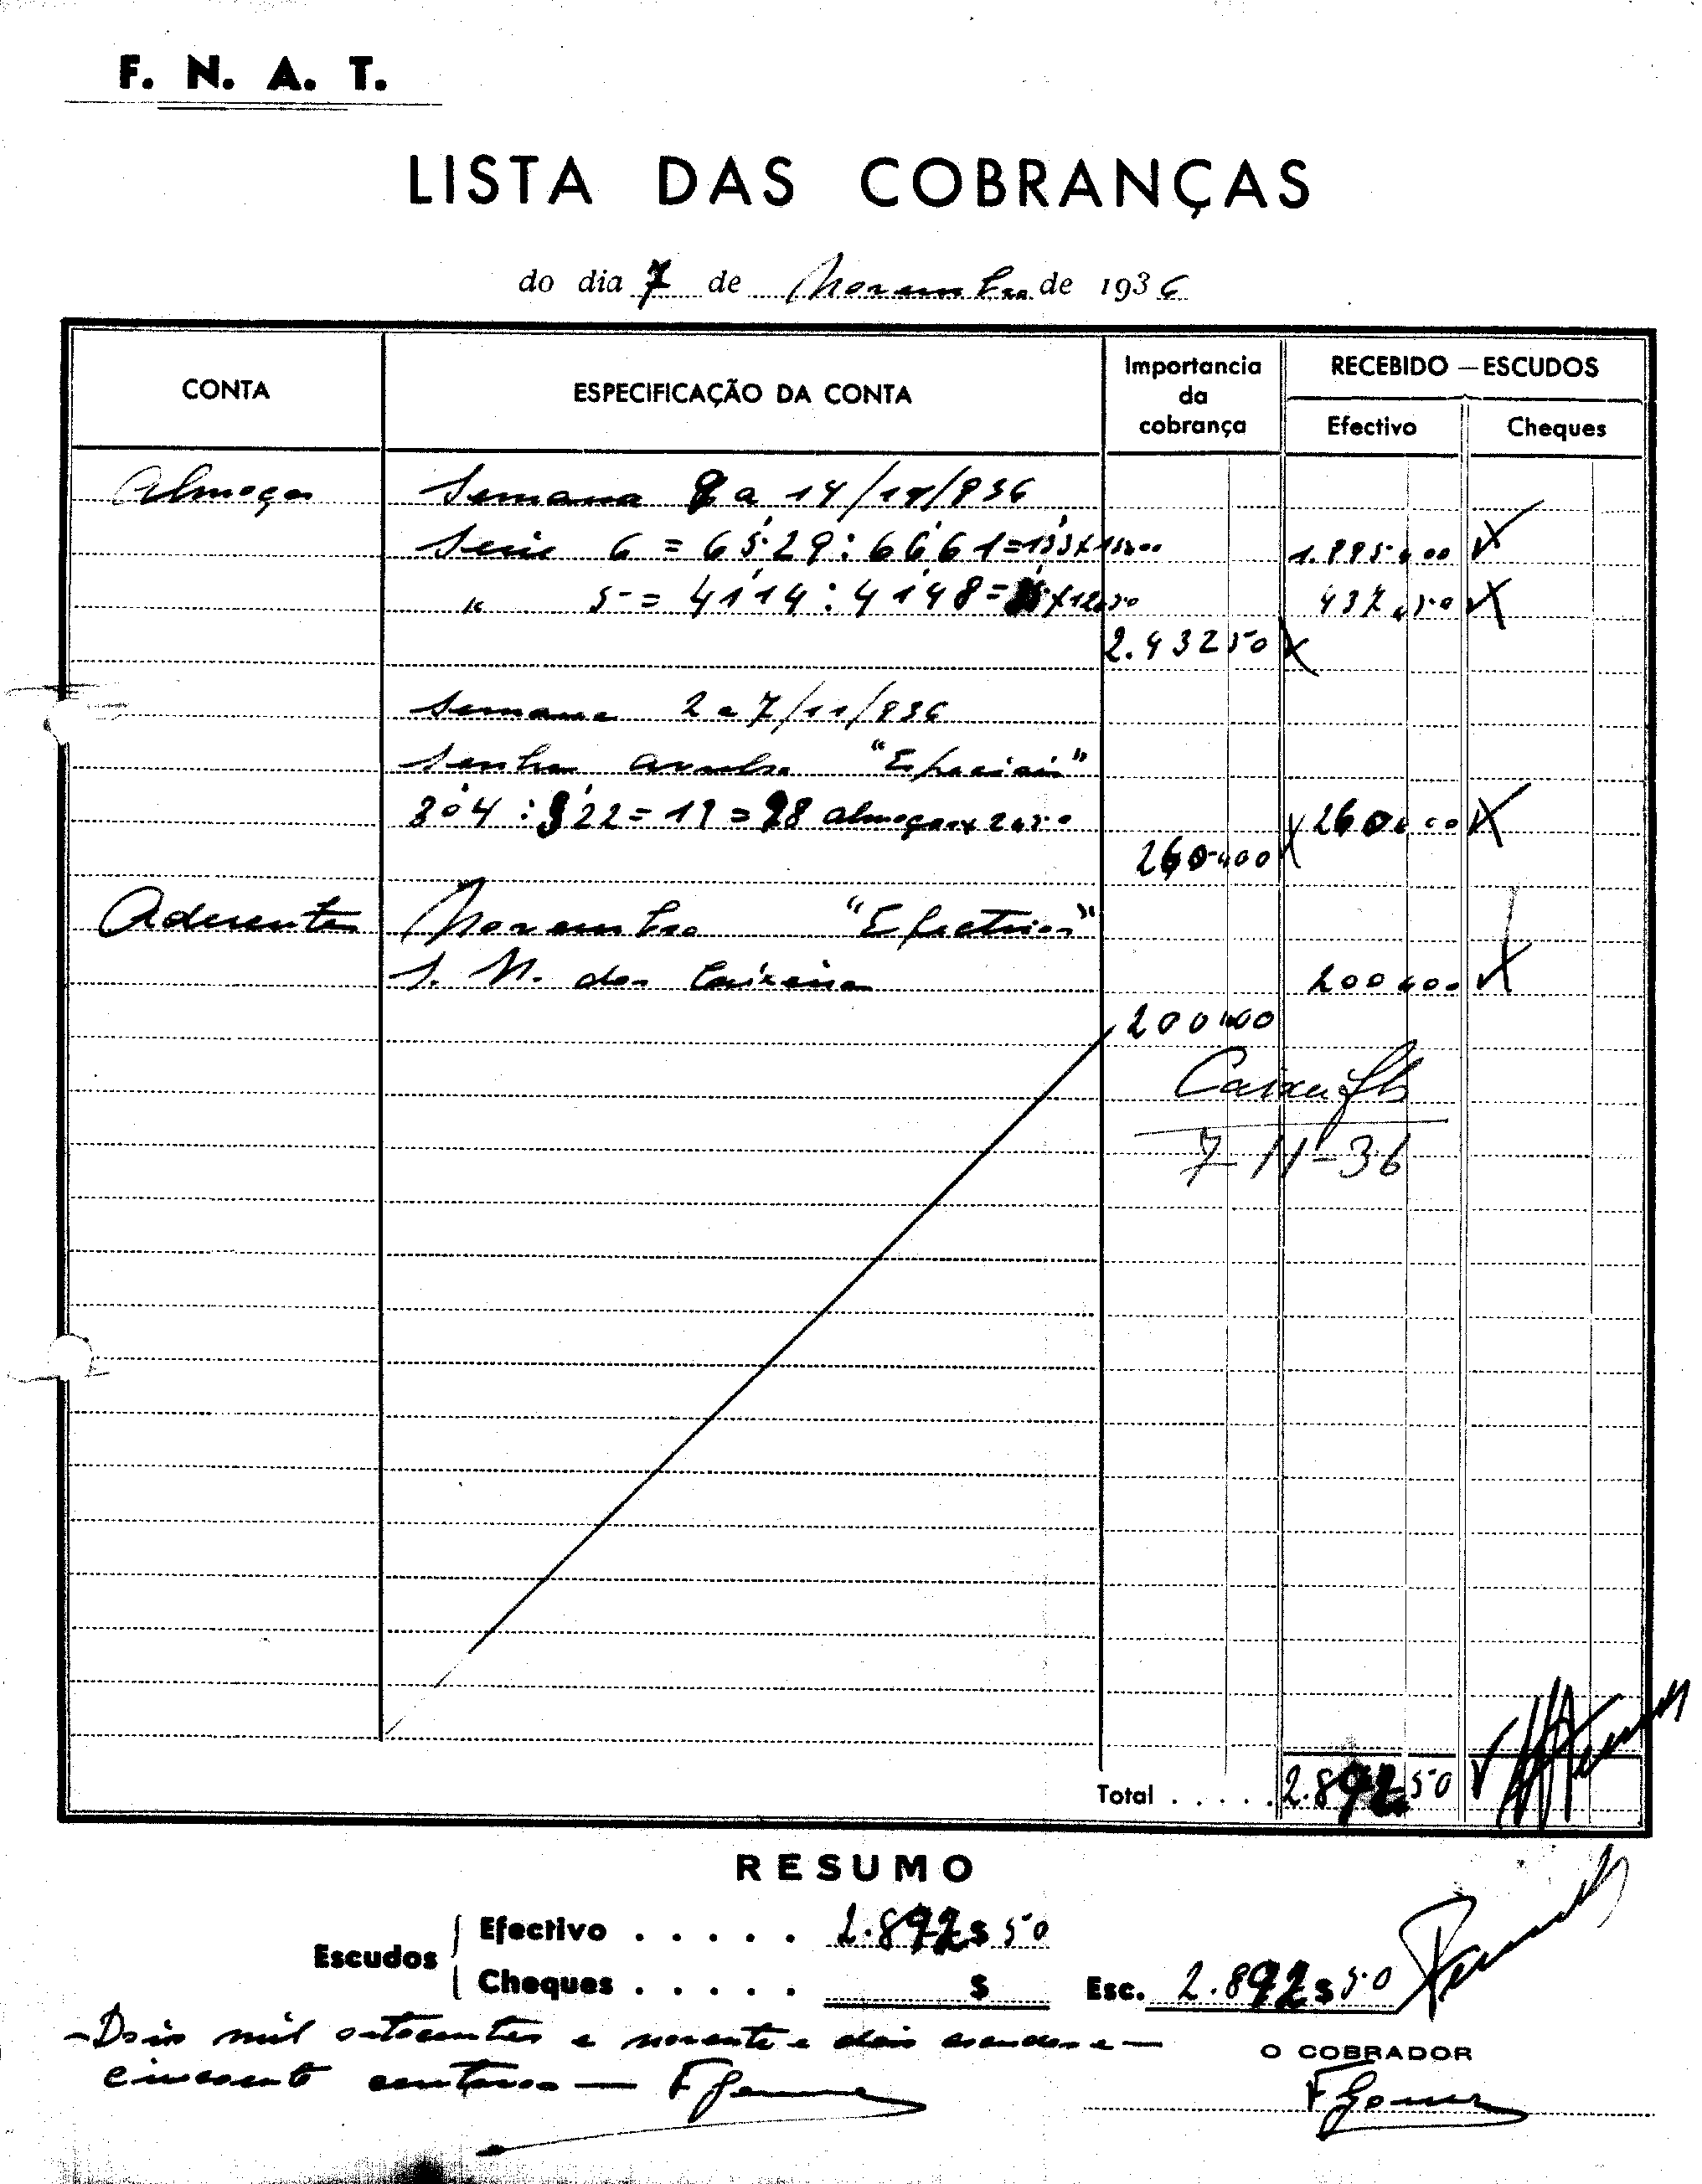 F. N. A. T.
LISTA DAS COBRANÇAS
do dia 7 de Novembro de 1936
CONTA
ESPECIFICAÇÃO DA CONTA
Importancia da cobrança
RECEBIDO — ESCUDOS
Efectivo
Cheques
Almoços Semana 9 a 14/11/936
Serie 6 = 6529 : 6661 = 133 x 15$00 1.995$00
" 5 = 4114 : 4148 = 35 x 12$50 437$50
2.432 50
Semana 2 a 7/11/936
Senhas avulso "Especiais"
804 : 822 = 19 = 98 almoços x 2$50 260$00
260$00
Aderentes Novembro "Efectivos"
S. N. dos Caixeiros 200$00
200$00
Caixa
7-11-36
Total . . . . . 2.892 50
RESUMO
Escudos
Efectivo . . . . . 2.892$50
Cheques . . . . . $
Esc. 2.892$50
— Dois mil oitocentos e noventa e dois escudos e —
cincoenta centavos — F Gomes
O COBRADOR
F Gomes